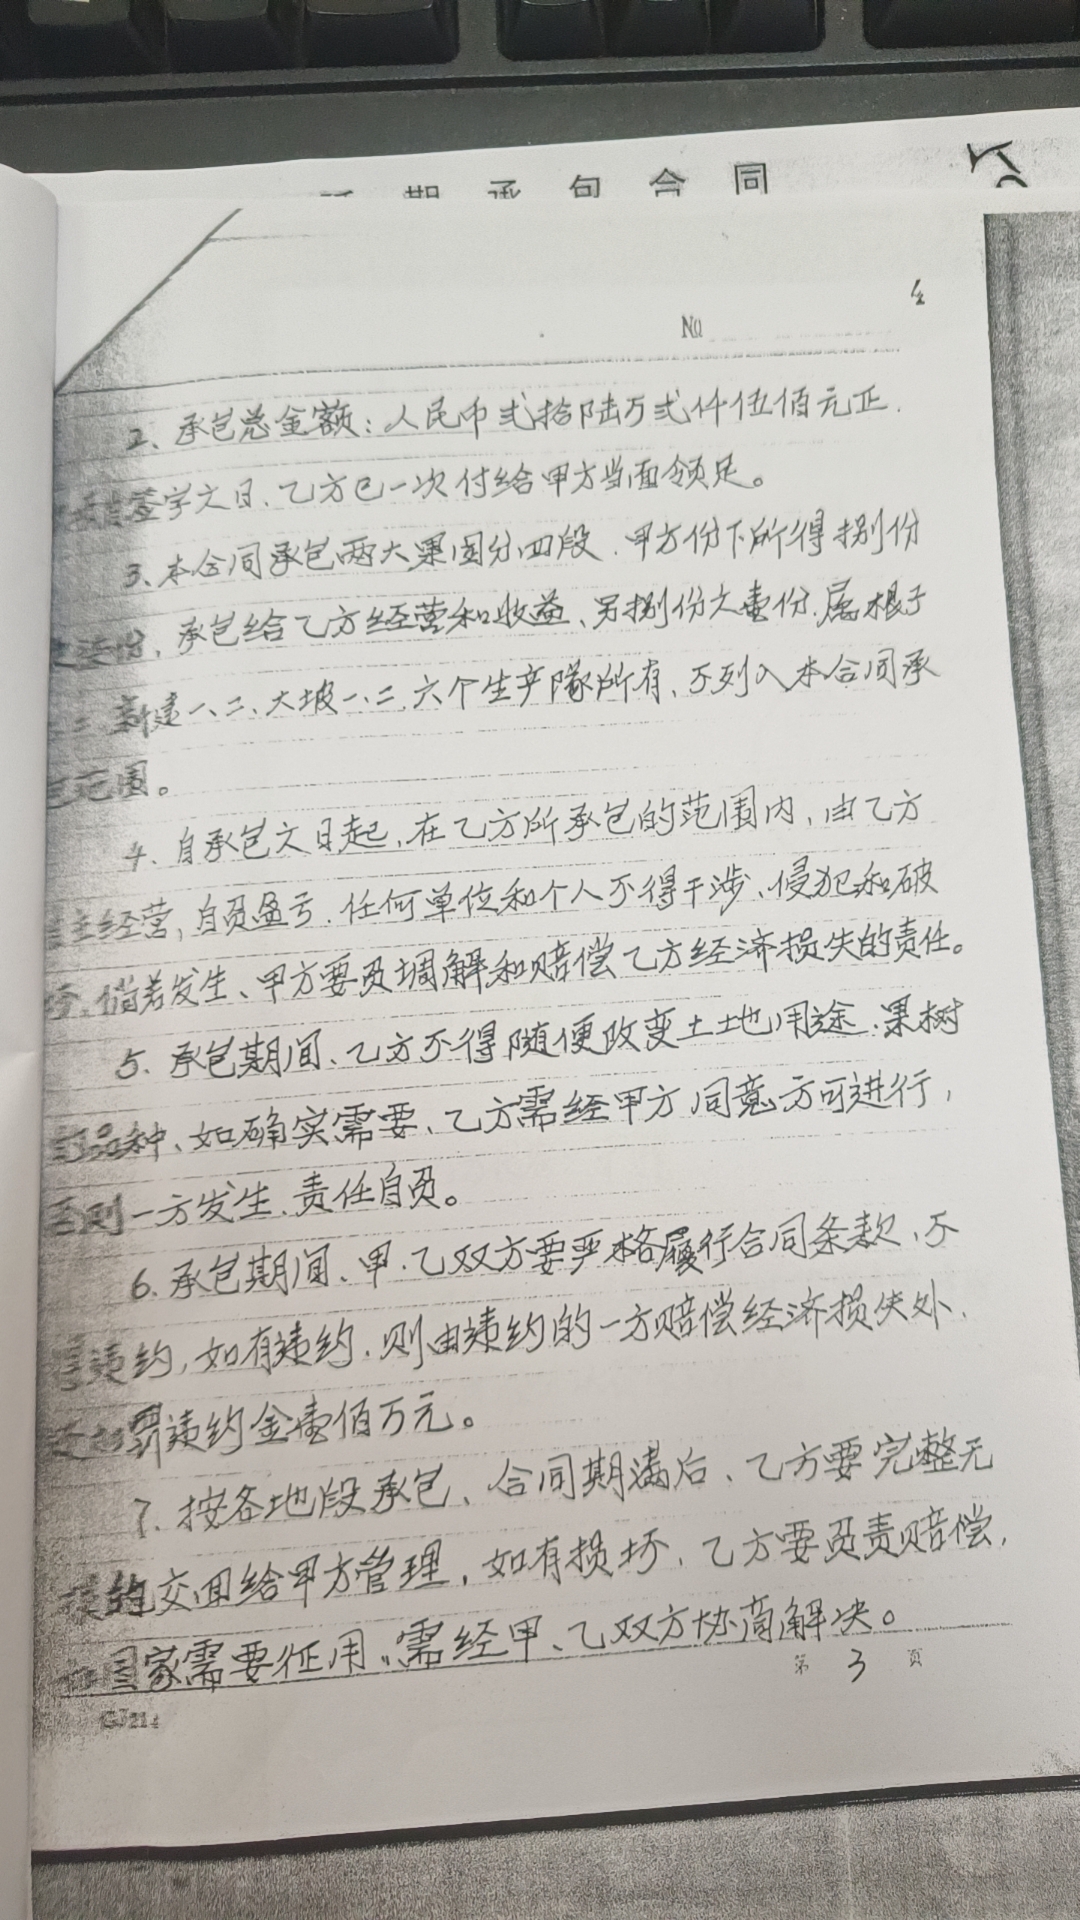 期承包合同
No
2、承包总金额：人民币弍拾陆万弍仟伍佰元正.
签字之日、乙方已一次付给甲方当面领足。
3、本合同承包两大果园分四段.甲方份下所得捌份
承包给乙方经营和收益、另捌份之壹份.属根子
新建一、二、大坡一、二.六个生产队所有、不列入本合同承
包范围。
4、自承包之日起,在乙方所承包的范围内,由乙方
自主经营,自负盈亏.任何单位和个人不得干涉、侵犯和破
坏.倘若发生、甲方要负调解和赔偿乙方经济损失的责任。
5、承包期间、乙方不得随便改变土地用途.果树
品种、如确实需要、乙方需经甲方同意方可进行,
否则一方发生.责任自负。
6.承包期间、甲.乙双方要严格履行合同条款、不
违约,如有违约.则由违约的一方赔偿经济损失外.
罚违约金壹佰万元。
7.按各地段承包、合同期满后、乙方要完整无
交回给甲方管理,如有损坏.乙方要负责赔偿,
国家需要征用、需经甲、乙双方协商解决。
第 3 页